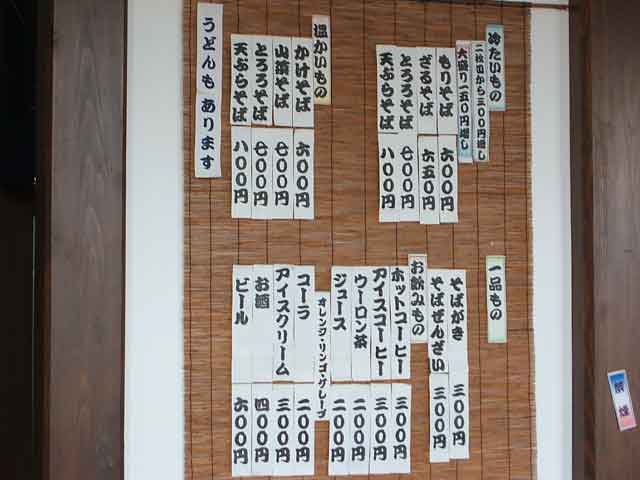 冷たいもの
二枚目から三〇〇円増し
大盛り一五〇円増し
もりそば 六〇〇円
ざるそば 六五〇円
とろろそば 七〇〇円
天ぷらそば 八〇〇円
温かいもの
かけそば 六〇〇円
山菜そば 七〇〇円
とろろそば 七〇〇円
天ぷらそば 八〇〇円
うどんも あります
一品もの
そばがき 三〇〇円
そばぜんざい 三〇〇円
お飲みもの
ホットコーヒー 三〇〇円
アイスコーヒー 三〇〇円
ウーロン茶 二〇〇円
ジュース 二〇〇円
オレンジ・リンゴ・グレープ
コーラ 二〇〇円
アイスクリーム 三〇〇円
お酒 四〇〇円
ビール 六〇〇円
禁煙